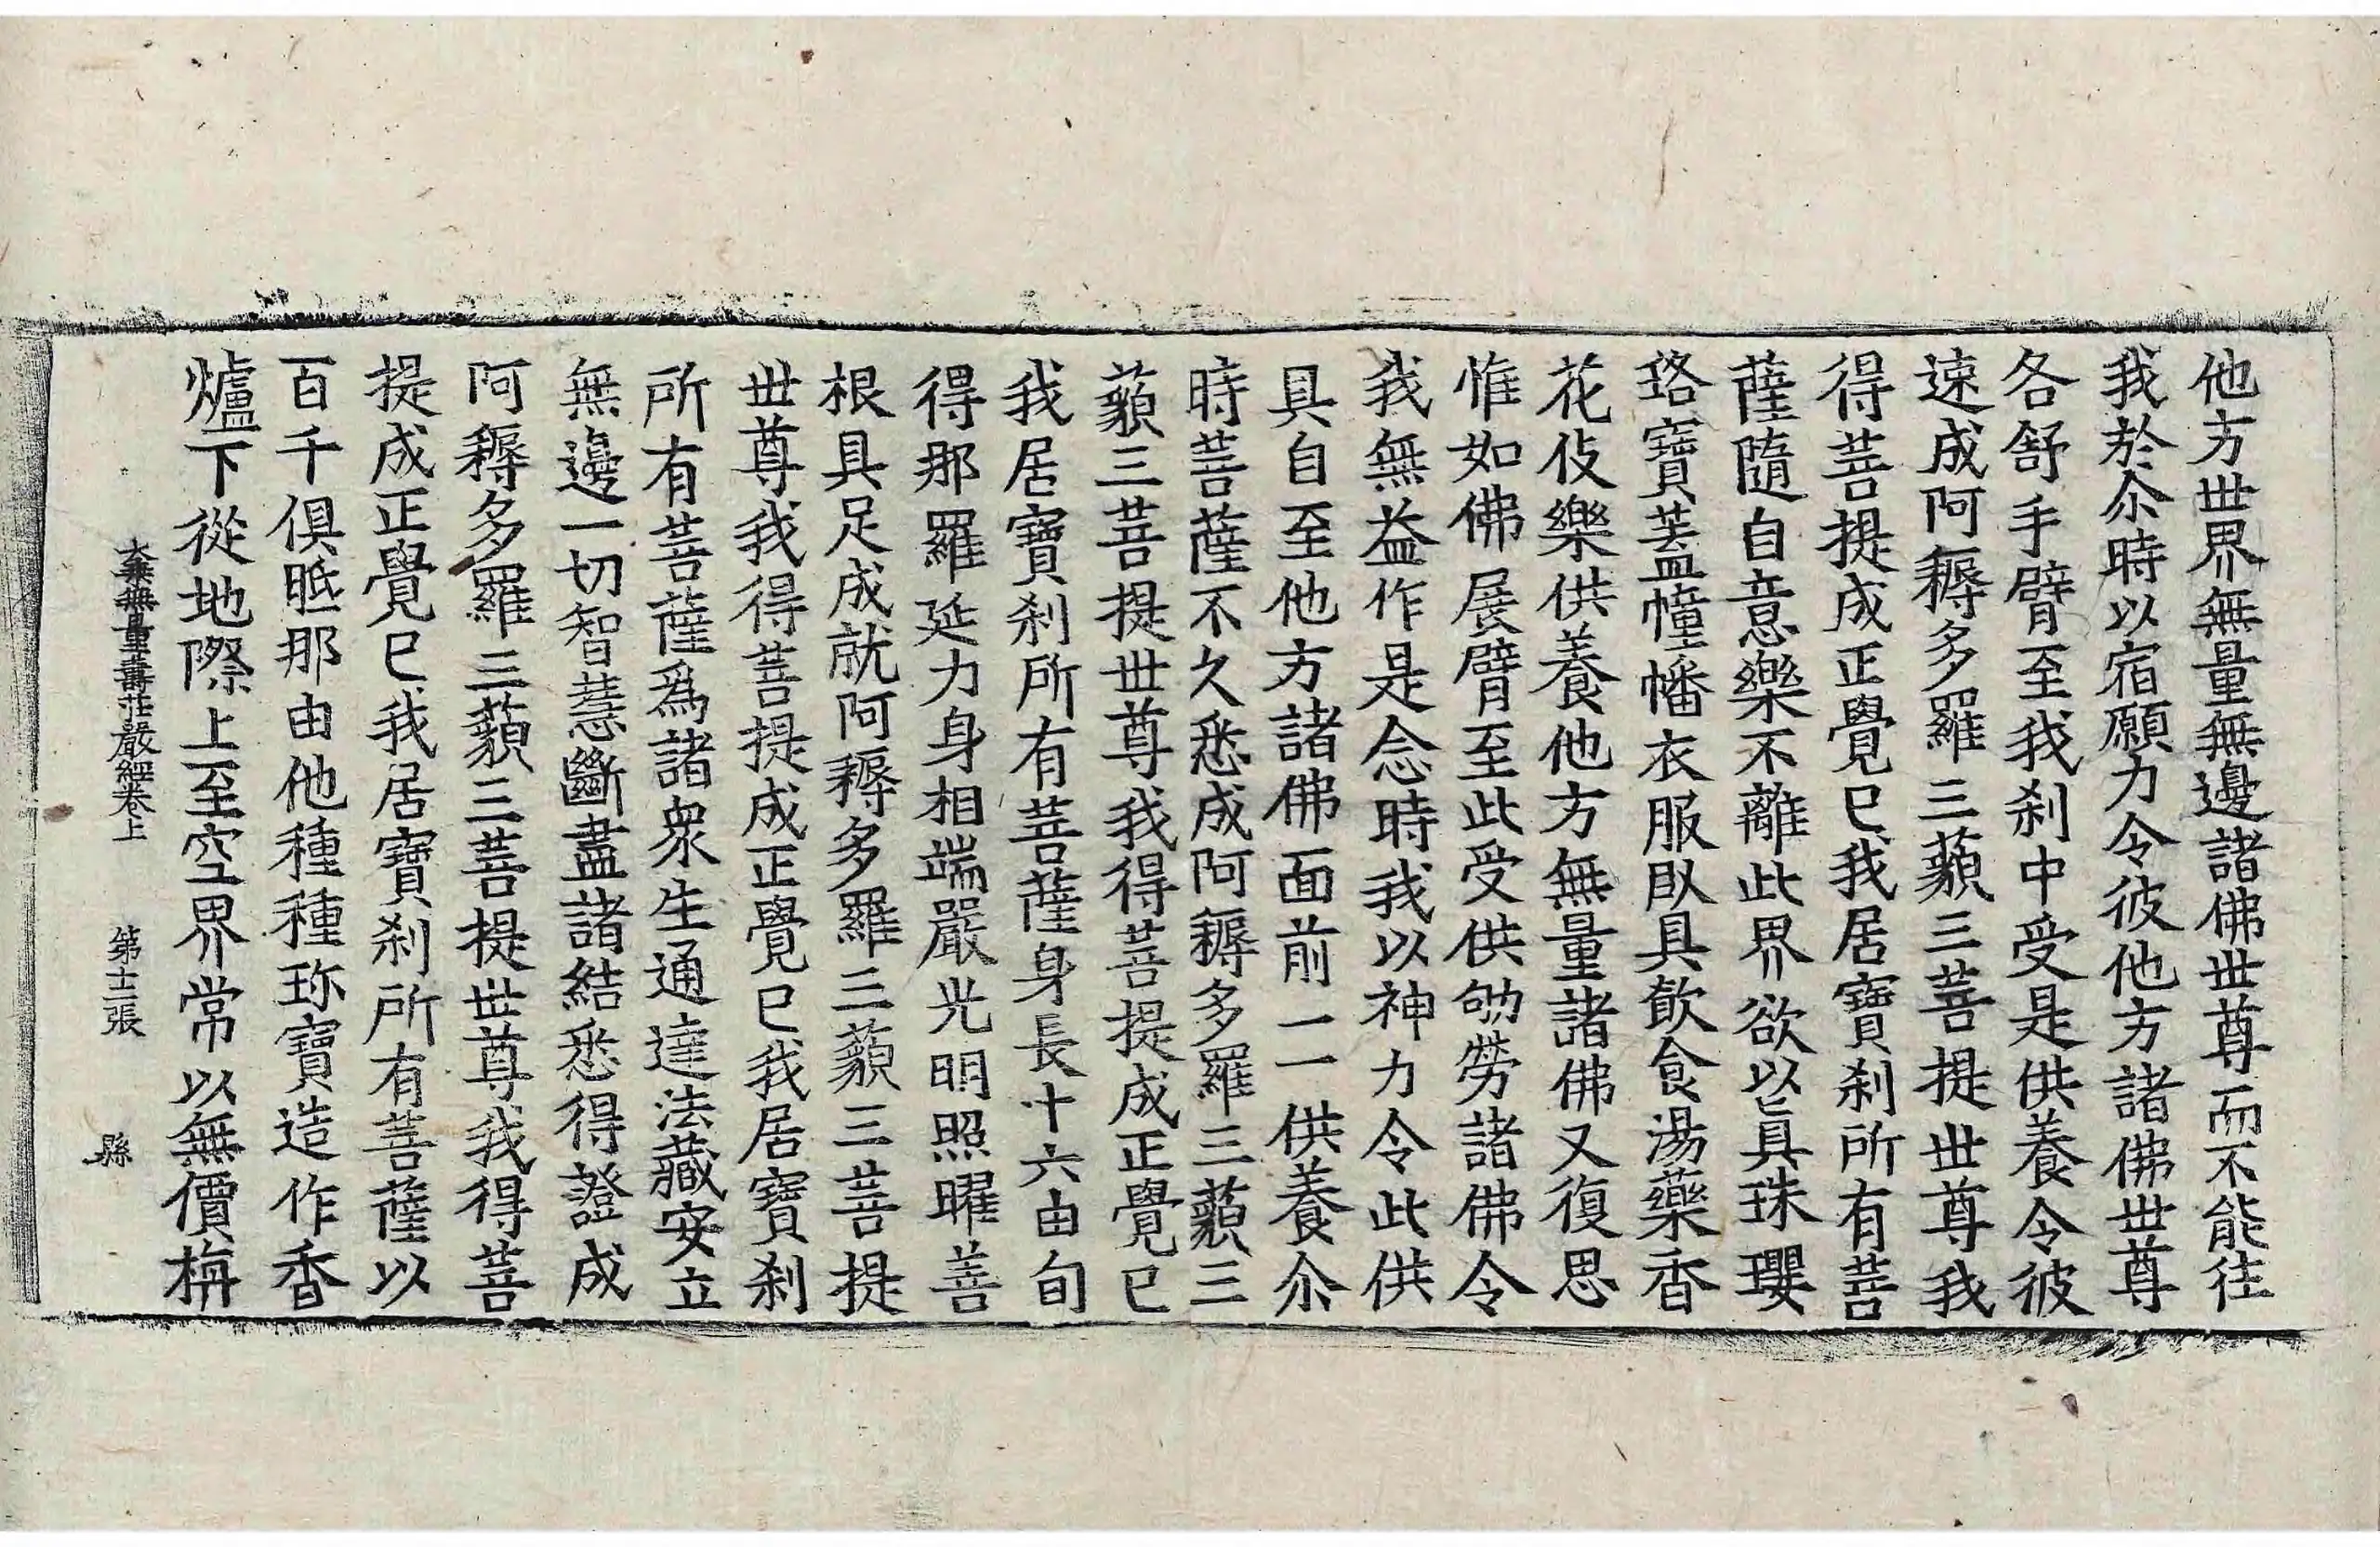 他方世界無量無邊諸佛世尊而不能往
我於尒時以宿願力令彼他方諸佛世尊
各舒手臂至我刹中受是供養令彼
速成阿耨多羅三藐三菩提世尊我
得菩提成正覺已我居寶刹所有菩
薩隨自意樂不離此界欲以眞珠瓔
珞寶盖幢幡衣服臥具飮食湯藥香
花伎樂供養他方無量諸佛又復思
惟如佛展臂至此受供劬勞諸佛令
我無益作是念時我以神力令此供
具自至他方諸佛面前一一供養尒
時菩薩不久悉成阿耨多羅三藐三
藐三菩提世尊我得菩提成正覺已
我居寶刹所有菩薩身長十六由旬
得那羅延力身相端嚴光明照曜善
根具足成就阿耨多羅三藐三菩提
世尊我得菩提成正覺已我居寶刹
所有菩薩爲諸衆生通達法藏安立
無邊一切智慧斷盡諸結悉得證成
阿耨多羅三藐三菩提世尊我得菩
提成正覺已我居寶刹所有菩薩以
百千俱胝那由他種種珎寶造作香
爐下從地際上至空界常以無價栴
大乗無量壽莊嚴經卷上 第十二張 縣